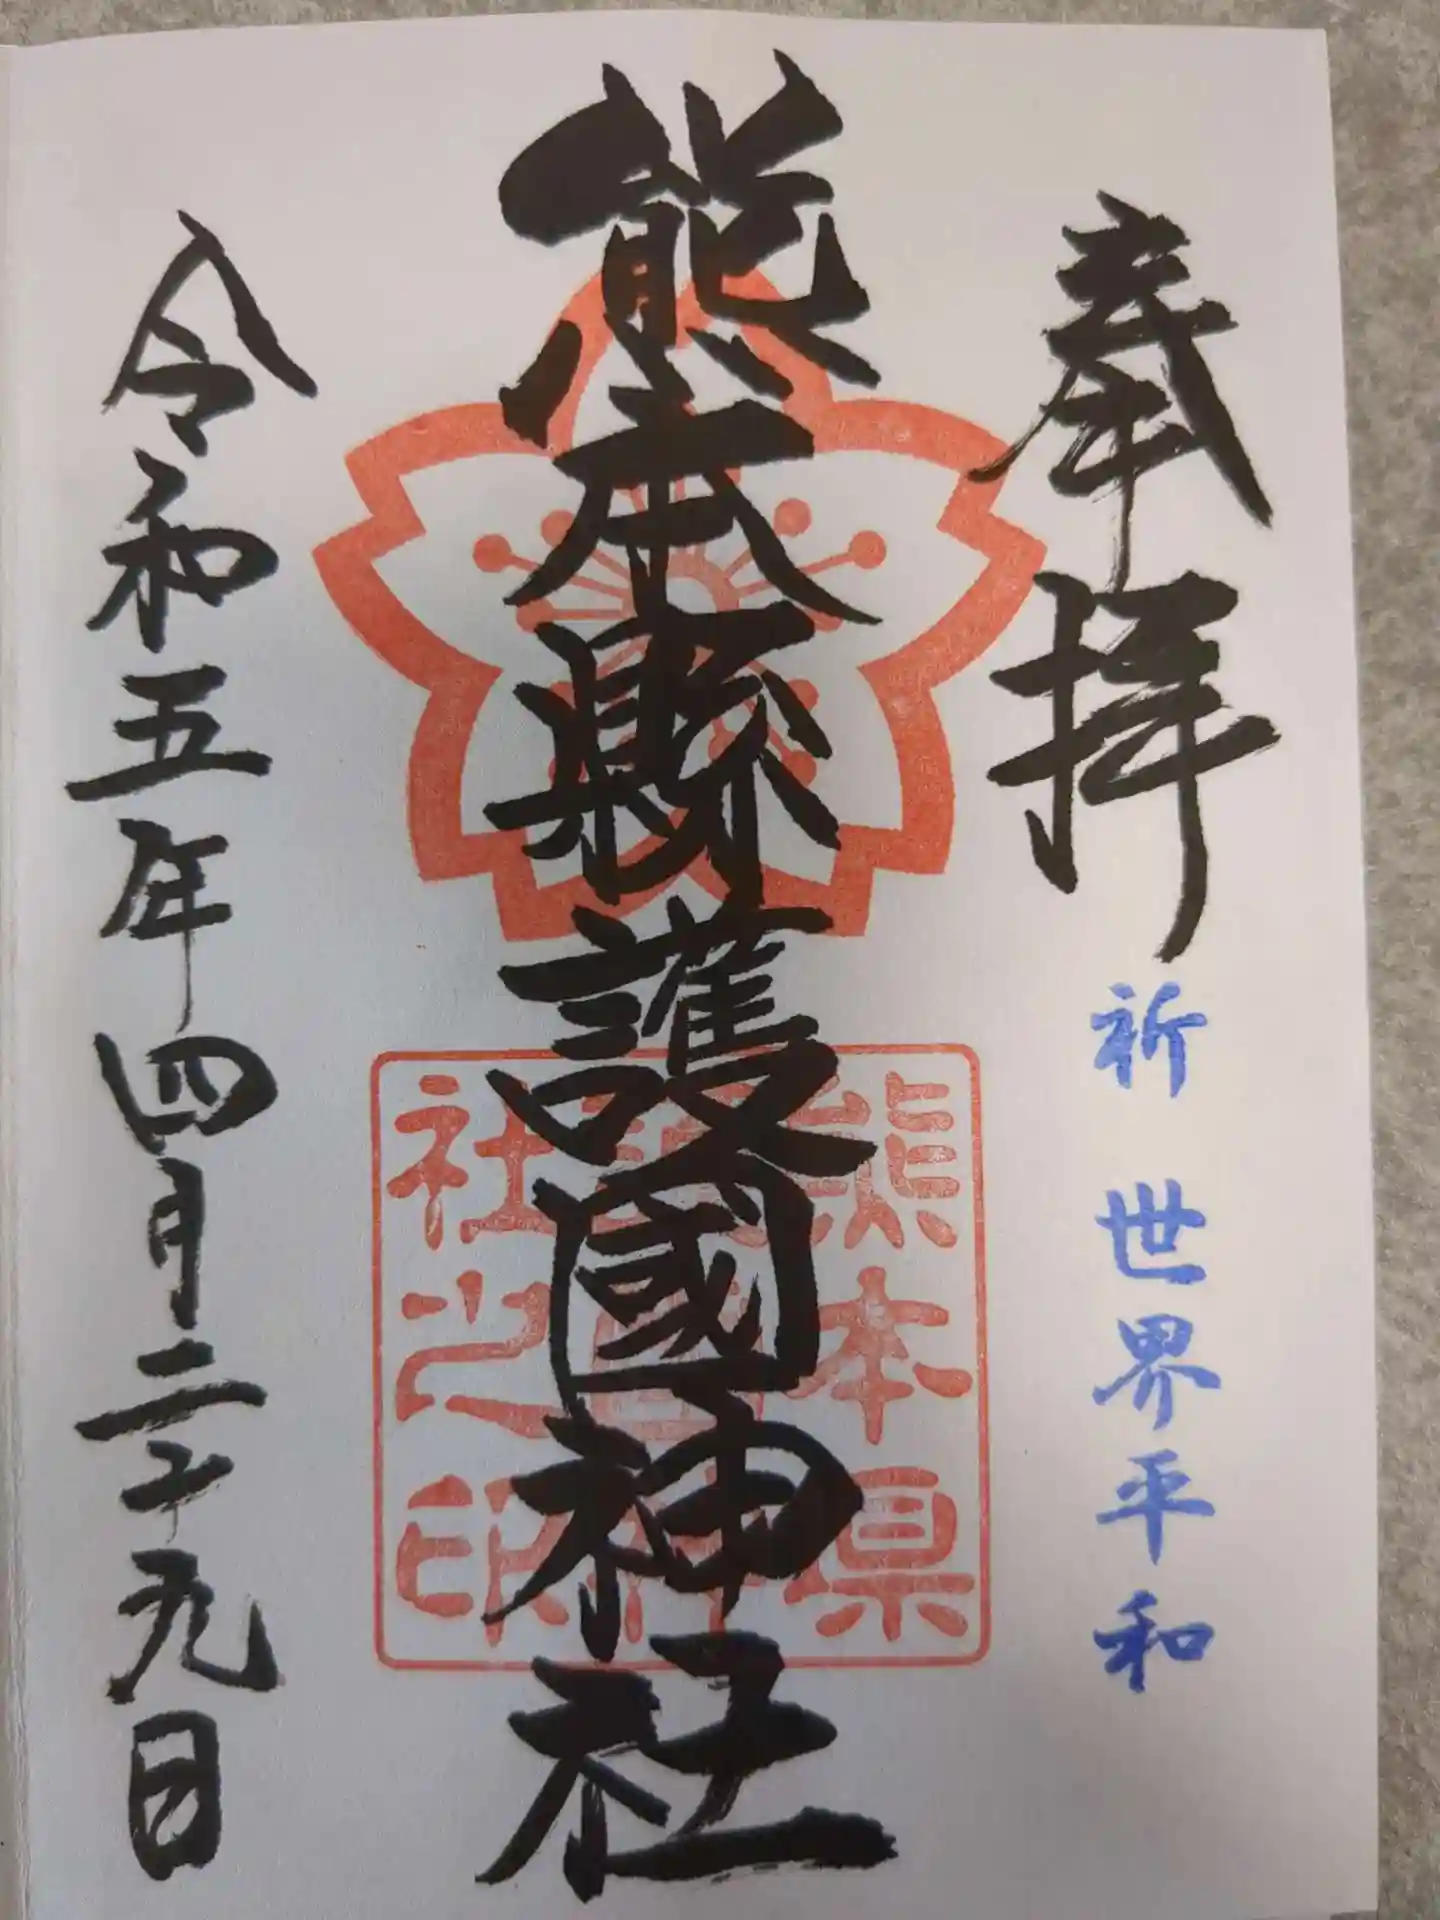 奉拝
祈 世界平和
熊本縣護國神社
熊本県
護国神
社之印
令和五年四月二十九日